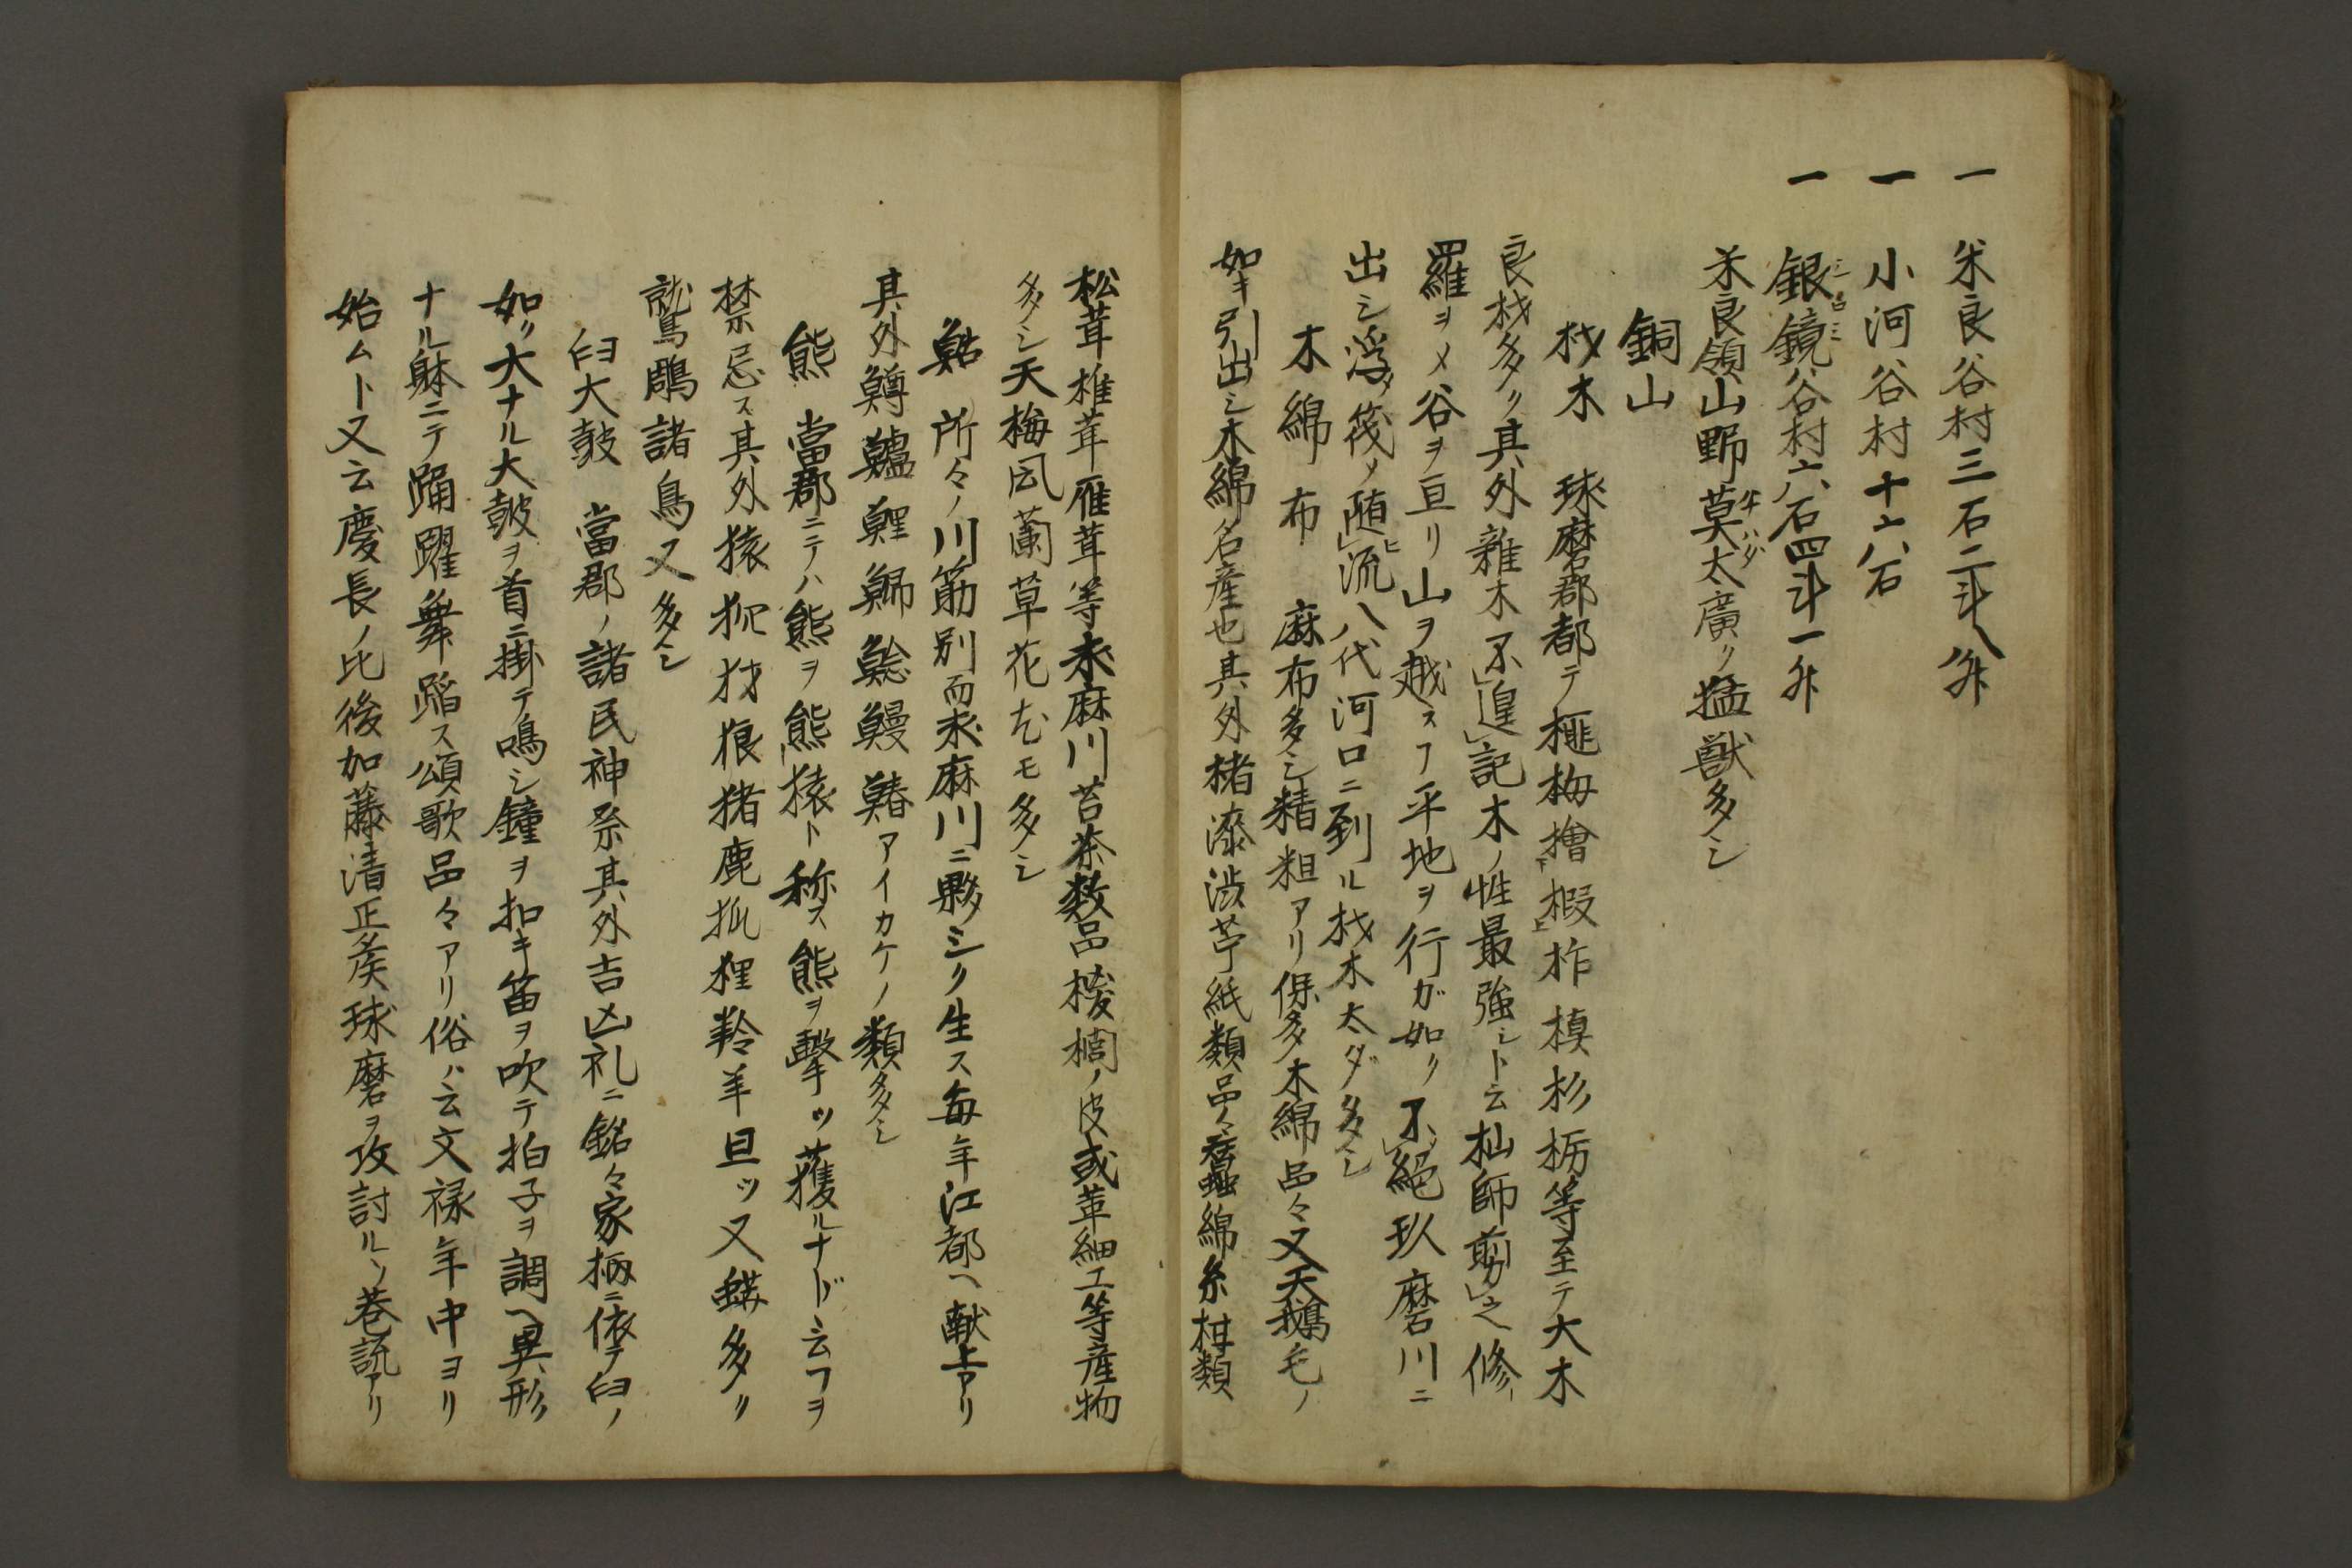 一 米良谷村三石二斗八升
一 小河谷村十六石
一 銀鏡谷村六石四斗一升
米良領山野莫太廣ク猛獣多シ
銅山
材木 球磨郡都テ榧梅檜椵柞樌杉栃等至テ大木
良材多ク其外雑木不遑記木ノ性最強シト云杣師剪之修
羅ヲメ谷ヲ亘リ山ヲ越スフ平地ヲ行ガ如ク不絶玖磨川ニ
出シ浮メ筏メ随ヒ流八代河口ニ到ル材木太ダ多シ
木綿布 麻布多シ精粗アリ保多木綿品々又天鵝毛ノ
如キ引出シ木綿名産也其外楮漆渋苧紙類品々蚕綿糸柑類
松茸椎茸雁茸等求麻川苔茶数品棕櫚ノ皮或革細工等産物
多シ天梅風蘭草花尤モ多シ
鮎 所々ノ川筋別而求麻川ニ夥シク生ス毎年江都ヘ献上アリ
其外鱒鱸鯉鯞鯰鰻鰆アイカケノ類多シ
熊 當郡ニテハ熊ヲ熊猿ト称ス熊ヲ撃ツ獲ルナド云フヲ
禁忌ス其外猿犯犲狼猪鹿狐狸羚羊且ツ又蟒多ク
鷲鵰諸鳥又多シ
臼大皷 當郡ノ諸民神祭其外吉凶礼ニ銘々家柄ニ依テ臼ノ
如ク大ナル大皷ヲ首ニ掛テ鳴シ鐘ヲ扣キ笛ヲ吹テ拍子ヲ調ヘ異形
ナル躰ニテ踊躍舞蹈ス頌歌品々アリ俗ハ云文禄年中ヨリ
始ムト又云慶長ノ比後加藤清正矦球磨ヲ攻討ルノ巷説アリ